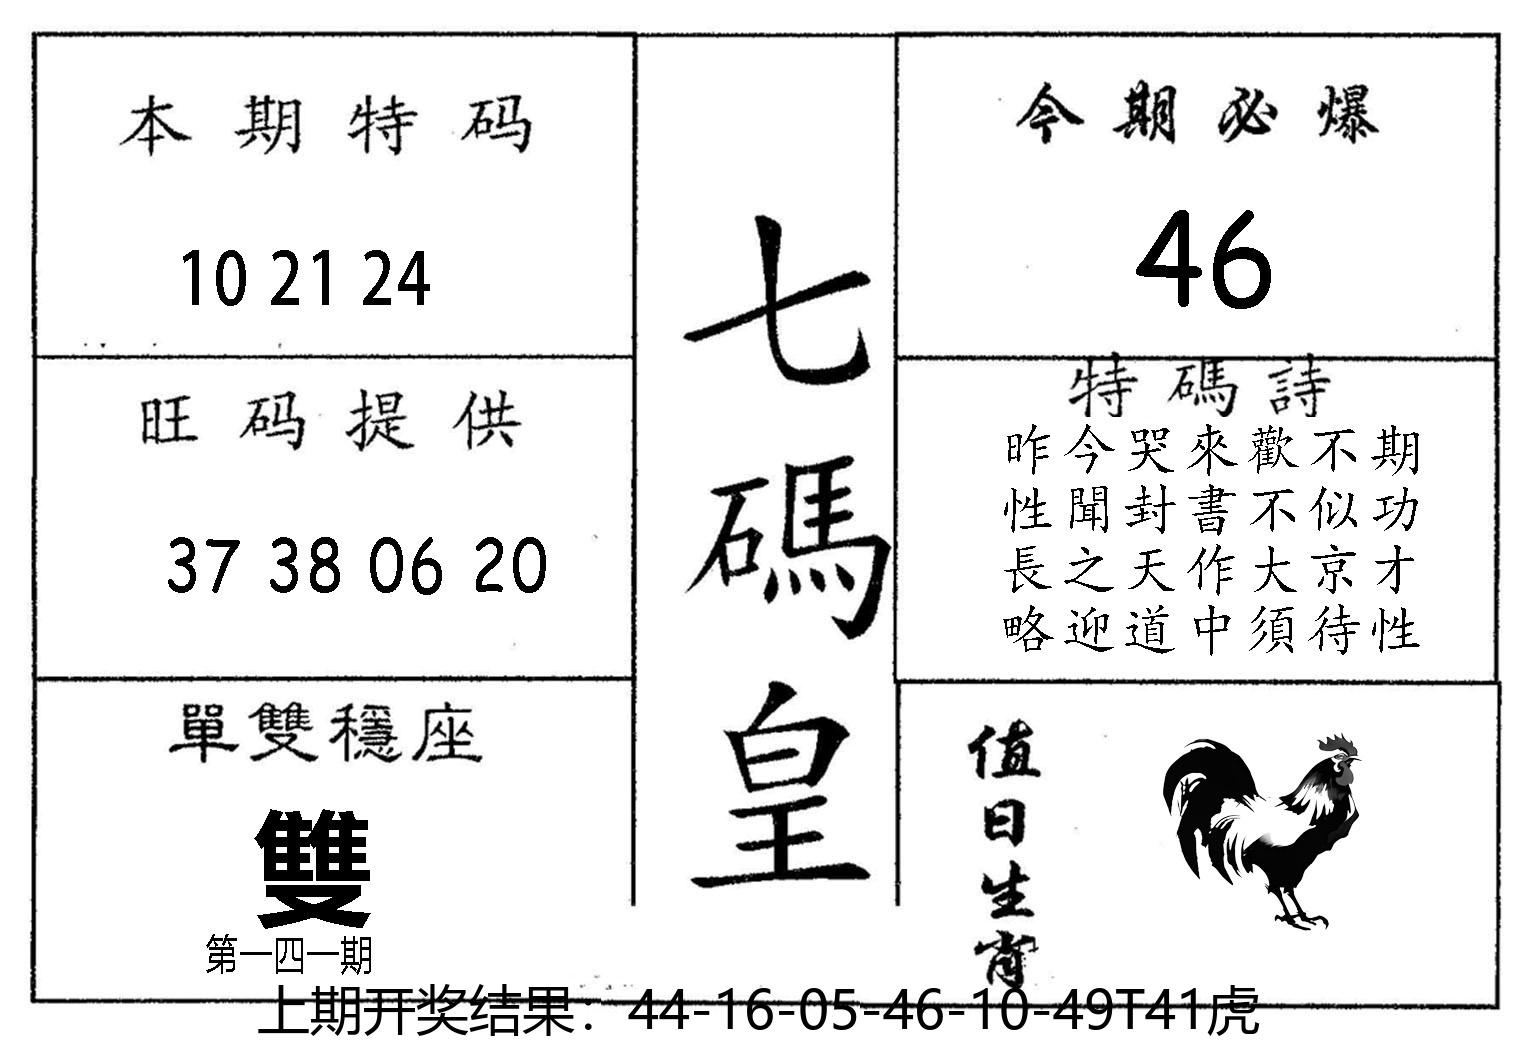 本期特码
10 21 24
旺码提供
37 38 06 20
單雙穩座
雙
第一四一期
七碼皇
今期必爆
46
特碼詩
昨今哭來歡不期
性聞封書不似功
長之天作大京才
略迎道中須待性
值日生肖
上期开奖结果：44-16-05-46-10-49T41虎